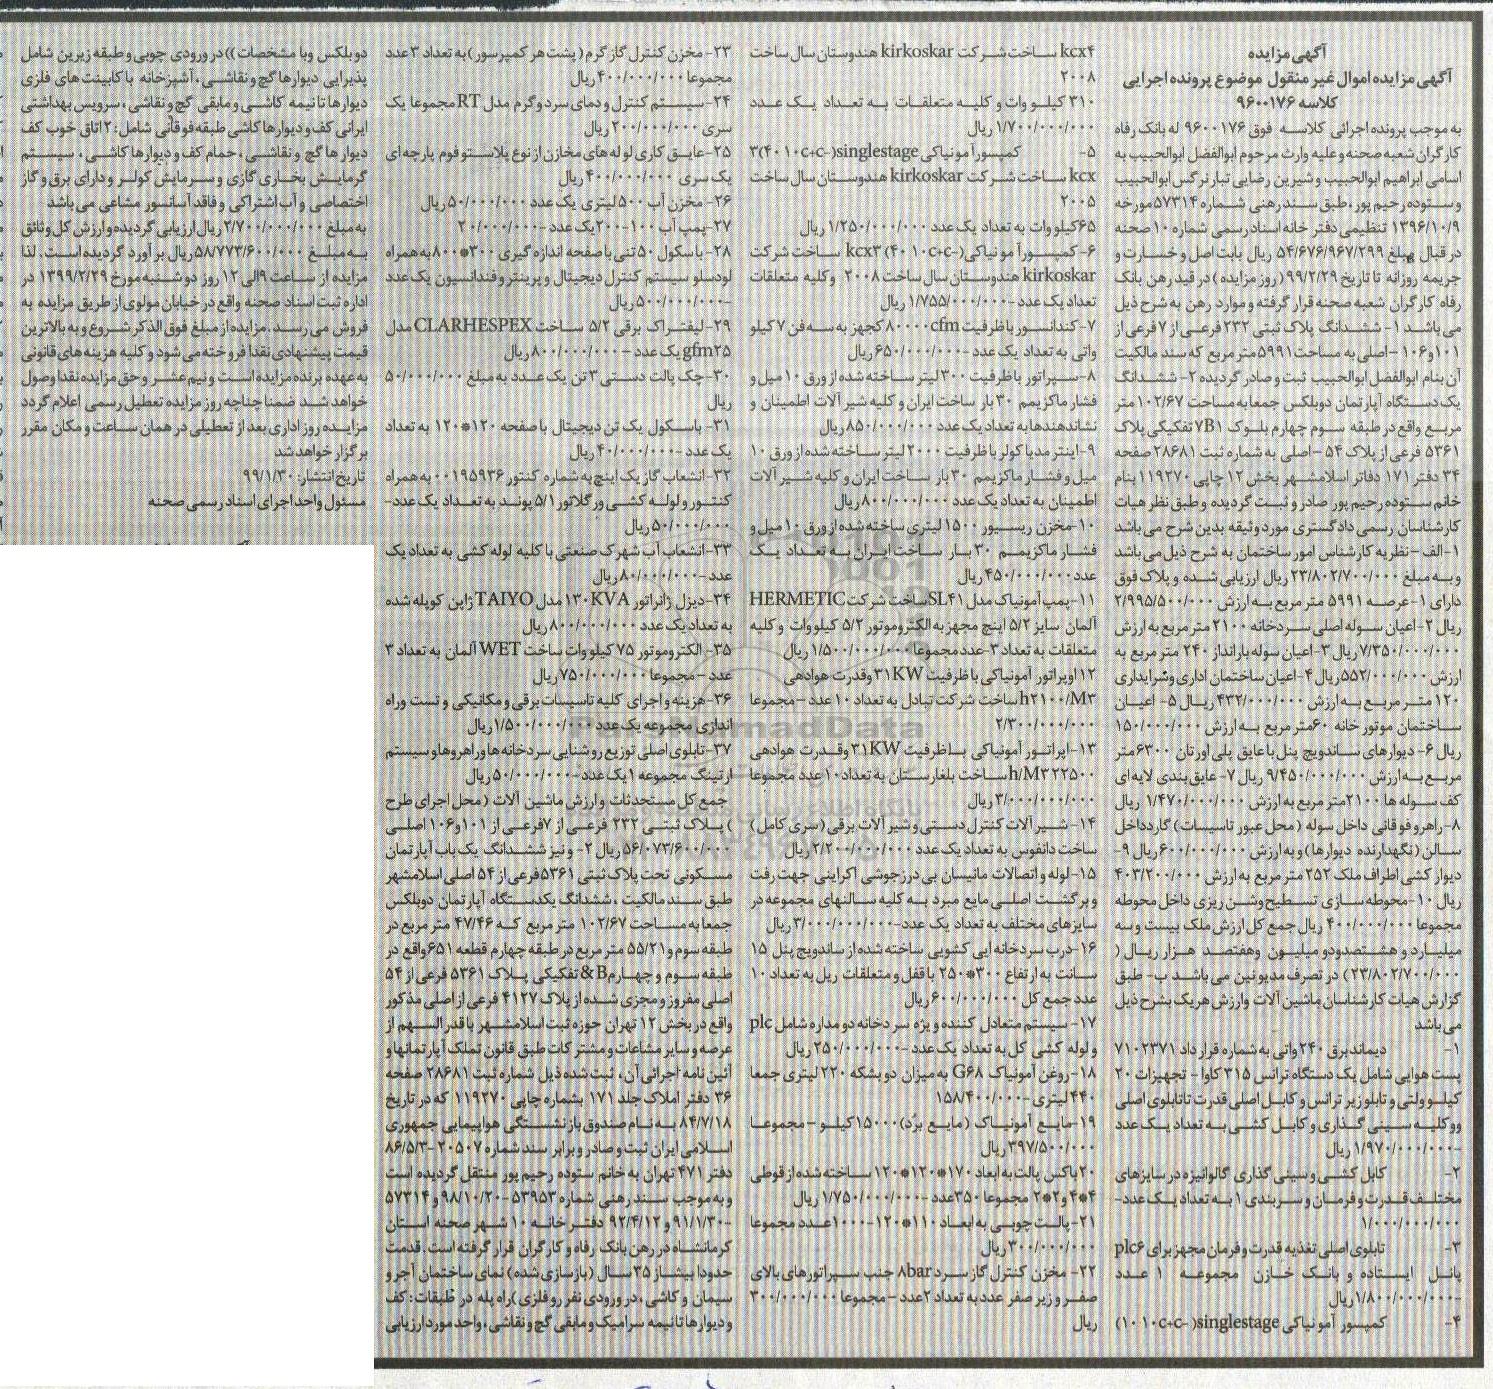 آگهی مزایده
آگهی مزایده اموال غیر منقول موضوع پرونده اجرایی
کلاسه ۹۶۰۰۱۷۶
به موجب پرونده اجرائی کلاسه فوق ۹۶۰۰۱۷۶ له بانک رفاه
کارگران شعبه صحنه و علیه وارث مرحوم ابوالفضل ابوالحبیب به
اسامی ابراهیم ابوالحبیب و شیرین رضایی تبار نرگس ابوالحبیب
و ستوده رحیم پور، طبق سند رهنی شماره ۵۷۳۱۴ مورخه
۱۳۹۶/۱۰/۹ تنظیمی دفتر خانه اسناد رسمی شماره ۱۰ صحنه
در قبال مبلغ ۵۴/۶۷۶/۹۶۷/۲۹۹ ریال بابت اصل و خسارت و
جریمه روزانه تا تاریخ ۹۹/۲/۲۹ (روز مزایده) در قید رهن بانک
رفاه کارگران شعبه صحنه قرار گرفته و موارد رهن به شرح ذیل
می باشد ۱- ششدانگ پلاک ثبتی ۲۳۲ فرعی از ۷ فرعی از
۱۰۱ و ۱۰۶ -اصلی به مساحت ۵۹۹۱ متر مربع که سند مالکیت
آن بنام ابوالفضل ابوالحبیب ثبت و صادر گردیده ۲- ششدانگ
یک دستگاه آپارتمان دوبلکس جمعا به مساحت ۱۰۲/۶۷ متر
مربع واقع در طبقه سوم چهارم بلوک ۷B۱ تفکیکی پلاک
۵۳۶۱ فرعی از پلاک ۵۴ -اصلی به شماره ثبت ۲۸۶۸۱ صفحه
۳۴ دفتر ۱۷۱ دفاتر اسلامشهر بخش ۱۲ چاپی ۱۱۹۲۷۰ بنام
خانم ستوده رحیم پور صادر و ثبت گردیده و طبق نظر هیات
کارشناسان رسمی دادگستری مورد وثیقه بدین شرح می باشد
۱-الف -نظریه کارشناس امور ساختمان به شرح ذیل می باشد
و به مبلغ ۲۳/۸۰۲/۷۰۰/۰۰۰ ریال ارزیابی شده و پلاک فوق
دارای ۱-عرصه ۵۹۹۱ متر مربع به ارزش ۲/۹۹۵/۵۰۰/۰۰۰
ریال ۲-اعیان سوله اصلی سردخانه ۲۱۰۰ متر مربع به ارزش
۷/۳۵۰/۰۰۰/۰۰۰ ریال ۳-اعیان سوله بارانداز ۲۴۰ متر مربع به
ارزش ۵۵۲/۰۰۰/۰۰۰ ریال ۴-اعیان ساختمان اداری و سرایداری
۱۲۰ متر مربع به ارزش ۴۳۲/۰۰۰/۰۰۰ ریال ۵- اعیان
ساختمان موتور خانه ۶۰ متر مربع به ارزش ۱۵۰/۰۰۰/۰۰۰
ریال ۶- دیوارهای ساندویچ پنل با عایق پلی اورتان ۶۳۰۰ متر
مربع به ارزش ۹/۴۵۰/۰۰۰/۰۰۰ ریال ۷-عایق بندی لایه ای
کف سوله ها ۲۱۰۰ متر مربع به ارزش ۱/۴۷۰/۰۰۰/۰۰۰ ریال
۸-راهرو فوقانی داخل سوله (محل عبور تاسیسات) گارد داخل
سالن (نگهدارنده دیوارها) و به ارزش ۶۰۰/۰۰۰/۰۰۰ ریال ۹-
دیوار کشی اطراف ملک ۲۵۲ متر مربع به ارزش ۴۰۳/۲۰۰/۰۰۰
ریال ۱۰-محوطه سازی تسطیح و شن ریزی داخل محوطه
مجموعا ۴۰۰/۰۰۰/۰۰۰ ریال جمع کل ارزش ملک بیست و سه
میلیارد و هشتصدو دو میلیون وهفتصد هزار ریال (
۲۳/۸۰۲/۷۰۰/۰۰۰) در تصرف مدیونین می باشد ب- طبق
گزارش هیات کارشناسان ماشین آلات وارزش هریک بشرح ذیل
می باشد
۱- دیماند برق ۲۴۰ واتی به شماره قرارداد ۷۱۰۲۳۷۱
پست هوایی شامل یک دستگاه ترانس ۳۱۵ کاوا - تجهیزات ۲۰
کیلو ولتی و تابلو زیر ترانس و کابل اصلی قدرت تا تابلوی اصلی
و وکلیه سینی گذاری و کابل کشی به تعداد یک عدد
-۱/۹۷۰/۰۰۰/۰۰۰ ریال
۲- کابل کشی و سینی گذاری گالوانیزه در سایزهای
مختلف قدرت و فرمان و سربندی ۱ به تعداد یک عدد-
۱/۰۰۰/۰۰۰/۰۰۰
۳- تابلوی اصلی تغذیه قدرت و فرمان مجهز برای plc۶
پانل ایستاده و بانک خازن مجموعه ۱ عدد
-۱/۸۰۰/۰۰۰/۰۰۰ ریال
۴- کمپسور آمونیاکی singlestage( -c+c۱۰ ۱۰)
kcx۴ ساخت شرکت kirkoskar هندوستان سال ساخت
۲۰۰۸
۳۱۰ کیلو وات و کلیه متعلقات به تعداد یک عدد
۱/۷۰۰/۰۰۰/۰۰۰ ریال
۵- کمپسور آمونیاکی singlestage(-c+c۱۰ ۴۰)۳
kcx ساخت شرکت kirkoskar هندوستان سال ساخت
۲۰۰۵
۶۵کیلو وات به تعداد یک عدد ۱/۲۵۰/۰۰۰/۰۰۰ ریال
۶-کمپسور آمونیاکی(-c+c۱۰ ۴۰) kcx۳ ساخت شرکت
kirkoskar هندوستان سال ساخت ۲۰۰۸ وکلیه متعلقات
تعداد یک عدد -۱/۷۵۵/۰۰۰/۰۰۰ ریال
۷-کندانسور با ظرفیت ۸۰۰۰۰cfm کجهز به سه فن ۷ کیلو
واتی به تعداد یک عدد -۶۵۰/۰۰۰/۰۰۰ ریال
۸-سپراتور با ظرفیت ۳۰۰ لیتر ساخته شده از ورق ۱۰ میل و
فشار ماکزیمم ۳۰ بار ساخت ایران و کلیه شیر آلات اطمینان و
نشاندهندها به تعداد یک عدد ۸۵۰/۰۰۰/۰۰۰ ریال
۹-اینتر مدیا کولر با ظرفیت ۲۰۰۰ لیتر ساخته شده از ورق ۱۰
میل و فشار ماکزیمم ۳۰ بار ساخت ایران و کلیه شیر آلات
اطمینان به تعداد یک عدد ۸۰۰/۰۰۰/۰۰۰ ریال
۱۰-مخزن ریسیور ۱۵۰۰ لیتری ساخته شده از ورق ۱۰ میل و
فشار ماکزیمم ۳۰ بار ساخت ایران به تعداد یک
عدد ۴۵۰/۰۰۰/۰۰۰ ریال
۱۱-پمپ آمونیاک مدل SL۴۱ ساخت شرکت HERMETIC
آلمان سایز ۵/۲ اینچ مجهز به الکتروموتور ۵/۲ کیلو وات و کلیه
متعلقات به تعداد ۳-عدد مجموعا ۱/۵۰۰/۰۰۰/۰۰۰ ریال
۱۲اوپراتور آمونیاکی با ظرفیت ۳۱KW وقدرت هوادهی
h۲۱۰۰/M۳ ساخت شرکت تبادل به تعداد ۱۰ عدد - مجموعا
۲/۳۰۰/۰۰۰/۰۰۰
۱۳-اپراتور آمونیاکی باظرفیت ۳۱KW وقدرت هوادهی
h/M۳۲۲۵۰۰ ساخت بلغارستان به تعداد ۱۰ عدد مجموعا
۳/۰۰۰/۰۰۰/۰۰۰ ریال
۱۴-شیر آلات کنترل دستی و شیر آلات برقی (سری کامل)
ساخت دانفوس به تعداد یک عدد ۲/۲۰۰/۰۰۰/۰۰۰ ریال
۱۵-لوله و اتصالات مانیسمان بی درز جوشی اکراینی جهت رفت
و برگشت اصلی مایع مبرد به کلیه سالنهای مجموعه در
سایزهای مختلف به تعداد یک عدد-۳/۰۰۰/۰۰۰/۰۰۰ ریال
۱۶-درب سردخانه ایی کشویی ساخته شده از ساندویچ پنل ۱۵
سانت به ارتفاع ۳۰۰*۲۵۰ با قفل و متعلقات ریل به تعداد ۱۰
عدد جمع کل ۶۰۰/۰۰۰/۰۰۰ ریال
۱۷- سیستم متعادل کننده ویژه سردخانه دو مداره شامل plc
و لوله کشی کل به تعداد یک عدد -۲۵۰/۰۰۰/۰۰۰ ریال
۱۸-روغن آمونیاک G۶۸ به میزان دو بشکه ۲۲۰ لیتری جمعا
۴۴۰ لیتری -۱۵۸/۴۰۰/۰۰۰
۱۹-مایع آمونیاک (مایع برُد) ۱۵۰۰۰ کیلو - مجموعا
۳۹۷/۵۰۰/۰۰۰ ریال
۲۰باکس پالت به ابعاد ۱۷۰*۱۲۰*۱۲۰ ساخته شده از قوطی
۴*۴ و ۲*۲ مجموعا ۳۵۰ عدد -۱/۷۵۰/۰۰۰/۰۰۰ ریال
۲۱-پالت چوبی به ابعاد ۱۱۰*۱۲۰-۱۰۰۰عدد مجموعا
۳۰۰/۰۰۰/۰۰۰ ریال
۲۲- مخزن کنترل گاز سرد ۸bar جنب سپراتورهای بالای
صفر و زیر صفر عدد به تعداد ۲عدد - مجموعا ۳۰۰/۰۰۰/۰۰۰
ریال
۲۳- مخزن کنترل گاز گرم (پشت هر کمپرسور) به تعداد ۳ عدد
مجموعا ۴۰۰/۰۰۰/۰۰۰ ریال
۲۴-سیستم کنترل و دمای سرد و گرم مدل RT مجموعا یک
سری ۲۰۰/۰۰۰/۰۰۰ ریال
۲۵-عایق کاری لوله های مخازن از نوع پلاستو فوم پارچه ای
یک سری ۴۰۰/۰۰۰/۰۰۰ ریال
۲۶- مخزن آب ۵۰۰ لیتری یک عدد ۵۰/۰۰۰/۰۰۰ ریال
۲۷-پمپ آب ۱۰۰-۲۰۰ یک عدد -۲۰/۰۰۰/۰۰۰
۲۸-باسکول ۵۰ تنی با صفحه اندازه گیری ۳۰۰*۸۰۰ به همراه
لودسلو سیستم کنترل دیجیتال و پرینتر و فندانسیون یک عدد
-۵۰۰/۰۰۰/۰۰۰ ریال
۲۹-لیفتراک برقی ۵/۲ ساخت CLARHESPEX مدل
gfm۲۵ یک عدد - ۸۰۰/۰۰۰/۰۰۰ ریال
۳۰-چک پالت دستی ۳ تن یک عدد به مبلغ ۵۰/۰۰۰/۰۰۰
ریال
۳۱- باسکول یک تن دیجیتال با صفحه ۱۲۰*۱۲۰ به تعداد
یک عدد -۴۰/۰۰۰/۰۰۰ ریال
۳۲-انشعاب گاز یک اینچ به شماره کنتور ۰۰۱۹۵۹۳۶ به همراه
کنتور و لوله کشی و رگلاتور ۵/۱ پوند به تعداد یک عدد-
۵۰/۰۰۰/۰۰۰ ریال
۳۳-انشعاب آب شهرک صنعتی با کلیه لوله کشی به تعداد یک
عدد -۸۰/۰۰۰/۰۰۰ ریال
۳۴-دیزل ژانراتور ۱۳۰KVA مدل TAIYO ژاپن کوپله شده
به تعداد یک عدد ۸۰۰/۰۰۰/۰۰۰ ریال
۳۵- الکتروموتور ۷۵ کیلو وات ساخت WET آلمان به تعداد ۳
عدد -مجموعا ۷۵۰/۰۰۰/۰۰۰ ریال
۳۶-هزینه و اجرای کلیه تاسیسات برقی و مکانیکی و تست وراه
اندازی مجموعه یک عدد ۱/۵۰۰/۰۰۰/۰۰۰ ریال
۳۷-تابلوی اصلی توزیع روشنایی سردخانه ها و راهروها و سیستم
ارتینگ مجموعه ۱ یک عدد -۵۰/۰۰۰/۰۰۰ ریال
جمع کل مستحدثات و ارزش ماشین آلات (محل اجرای طرح
) پلاک ثبتی ۲۳۲ فرعی از ۷فرعی از ۱۰۱و ۱۰۶ اصلی
۵۶/۰۷۳/۶۰۰/۰۰۰ ریال ۲- و نیز ششدانگ یک باب آپارتمان
مسکونی تحت پلاک ثبتی ۵۳۶۱فرعی از ۵۴ اصلی اسلامشهر
طبق سند مالکیت ،ششدانگ یکدستگاه آپارتمان دوبلکس
جمعا به مساحت ۱۰۲/۶۷ متر مربع که ۴۷/۴۶ متر مربع در
طبقه سوم و ۵۵/۲۱ متر مربع در طبقه چهارم قطعه ۶۵۱واقع در
طبقه سوم و چهارم &B تفکیکی پلاک ۵۳۶۱ فرعی از ۵۴
اصلی مفروز و مجزی شده از پلاک ۴۱۲۷ فرعی از اصلی مذکور
واقع در بخش ۱۲ تهران حوزه ثبت اسلامشهر با قدر السهم از
عرصه و سایر مشاعات و مشترکات طبق قانون تملک آپارتمانها و
آئین نامه اجرائی آن، ثبت شده ذیل شماره ثبت ۲۸۶۸۱ صفحه
۳۶ دفتر املاک جلد ۱۷۱ بشماره چاپی ۱۱۹۲۷۰ که در تاریخ
۸۴/۷/۱۸ به نام صندوق بازنشستگی هواپیمایی جمهوری
اسلامی ایران ثبت و صادر و برابر سند شماره ۲۰۵۰۷-۸۶/۵/۳
دفتر ۴۷۱ تهران به خانم ستوده رحیم پور منتقل گردیده است
و به موجب سند رهنی شماره ۵۳۹۵۳-۹۸/۱۰/۲۰ و ۵۷۳۱۴
-۹۱/۱/۳۰ و ۹۲/۴/۱۲ دفتر خانه ۱۰ شهر صحنه استان
کرمانشاه در رهن بانک رفاه و کارگران قرار گرفته است. قدمت
حدودا بیشتاز ۳۵ سال (بازسازی شده) نمای ساختمان آجر و
سیمان و کاشی ،در ورودی نفر رو فلزی )راه پله در طبقات: کف
و دیوارها تا نیمه سرامیک و مابقی گچ و نقاشی، واحد مورد ارزیابی
دوبلکس وبا مشخصات)) در ورودی چوبی و طبقه زیرین شامل
پذیرایی دیوارها گچ و نقاشی ، آشپزخانه با کابینت های فلزی
دیوارها تا نیمه کاشی و مابقی گچ و نقاشی ، سرویس بهداشتی
ایرانی کف و دیوارها کاشی طبقه فوقانی شامل: ۲ اتاق خوب کف
دیوار ها گچ و نقاشی ، حمام کف و دیوارها کاشی ، سیستم
گرمایش بخاری گازی و سرمایش کولر و دارای برق و گاز
اختصاصی و آب اشتراکی و فاقد آسانسور مشاعی می باشد
به مبلغ ۲/۷۰۰/۰۰۰/۰۰۰ ریال ارزیابی گردیده و ارزش کل وثائق
به مبلغ ۵۸/۷۷۳/۶۰۰/۰۰۰ ریال برآورد گردیده است. لذا
مزایده از ساعت ۹الی ۱۲ روز دوشنبه مورخ ۱۳۹۹/۲/۲۹ در
اداره ثبت اسناد صحنه واقع در خیابان مولوی از طریق مزایده به
فروش می رسد. مزایده از مبلغ فوق الذکر شروع و به بالاترین
قیمت پیشنهادی نقدا فروخته می شود و کلیه هزینه های قانونی
به عهده برنده مزایده است و نیم عشر و حق مزایده نقدا وصول
خواهد شد ضمنا چناچه روز مزایده تعطیل رسمی اعلام گردد
مزایده روز اداری بعد از تعطیلی در همان ساعت و مکان مقرر
برگزار خواهد شد
تاریخ انتشار: ۹۹/۱/۳۰
مسئول واحد اجرای اسناد رسمی صحنه